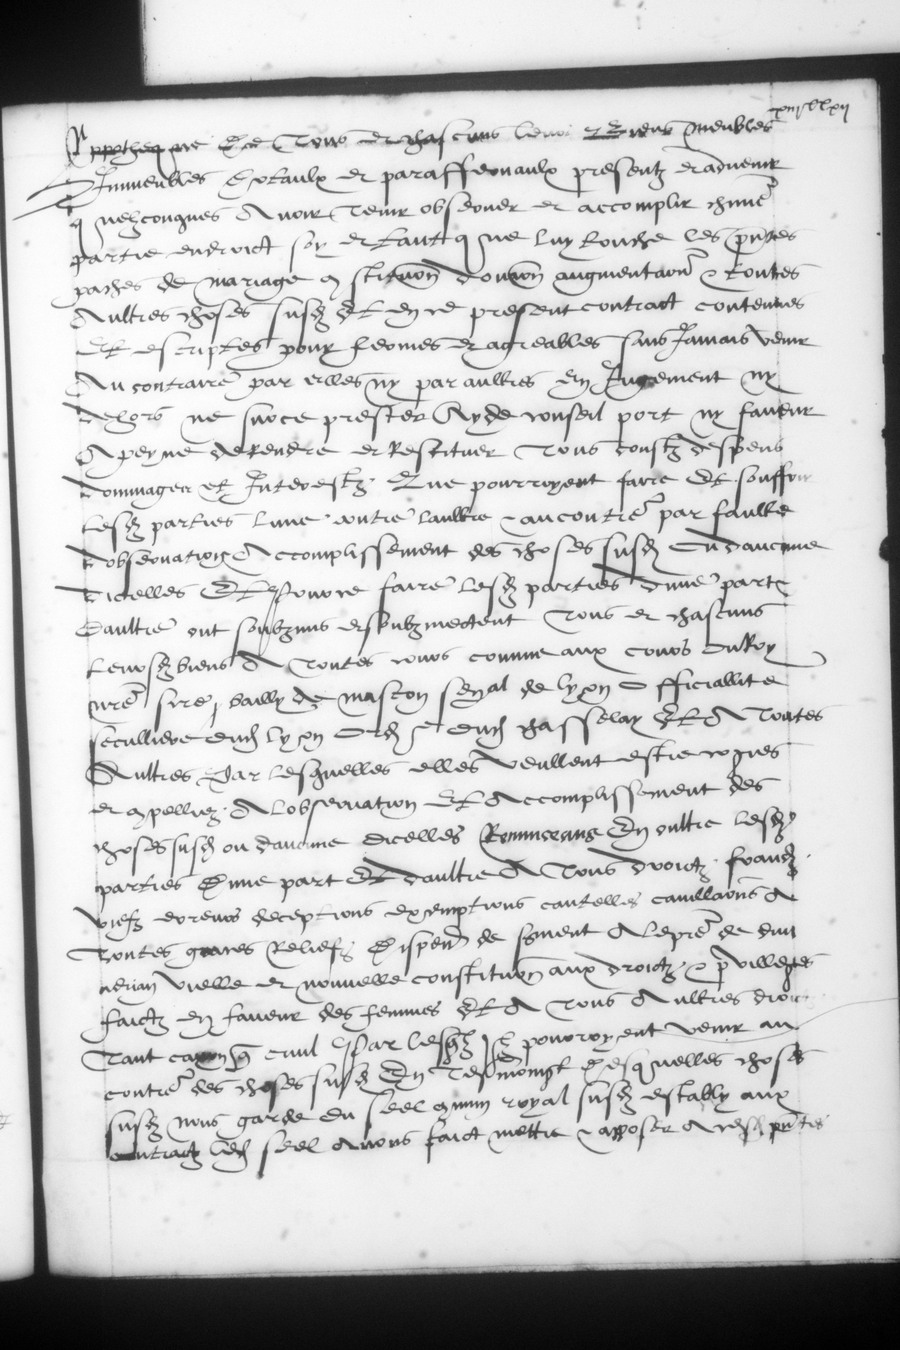 xiiijc lxxij
Ippothecque De Tous et chascuns leurs Biens meubles
Immeubles Dotaulx et paraffernaulx presentz et advenir
quelzconques Avoir Tenir observer et accomplir chune
partie endroict soy et tant que luy touche les pntes
paches de mariage constitution donaon augmentaon & toutes
Aultres choses susd Et en ce present contract contenues
Et escriptes pour fermes et agreables sans Jamais venir
Au contraire par elles ny par aultres En Jugement ny
dehors ne sur ce prester Ayde conseil port ny faveur
A peyne de Rendre et Restituer Tous coustz despens
dommages et Interestz Que pourroyent faire Et souffrir
lesd parties lune contre laultre & au contre par faulte
dobservation & Accomplissement des choses susd ou daucune
dicelles Et pour ce faire lesd parties dune part &
Daultre ont soubzmis et soubzmectent Tous et chascuns
leursd biens A Toutes cours comme aux cours du Roy
nre sire bailly de mascon senal de lyon Officiallite
seculliere dud lyon dud chasselay Et A Toutes
Aultres Par lesquelles elles veullent estre
et compellez A lobservation Et Accomplissement des
choses susd ou daucune dicelles Renonceans En oultre lesd
parties Dune part Et daultre A Tous droictz
erreurs deceptions exemptions cautelles cavillaons A
Toutes graces Reliefz Dispen de serment A lepre de divi
adrian vielle et nouvelle constitution aux droictz & privilleges
faictz en faveur des femmes Et A Tous Aultres droictz
Tant canon que civil Par lesqlz Ilz pourroyent venir au
contre des choses susd En Tesmoingt Desquelles choses
susd nous garde du seel commun royal susd estably aux
contractz led seel Avons faict mettre & apposer A cesd pntes